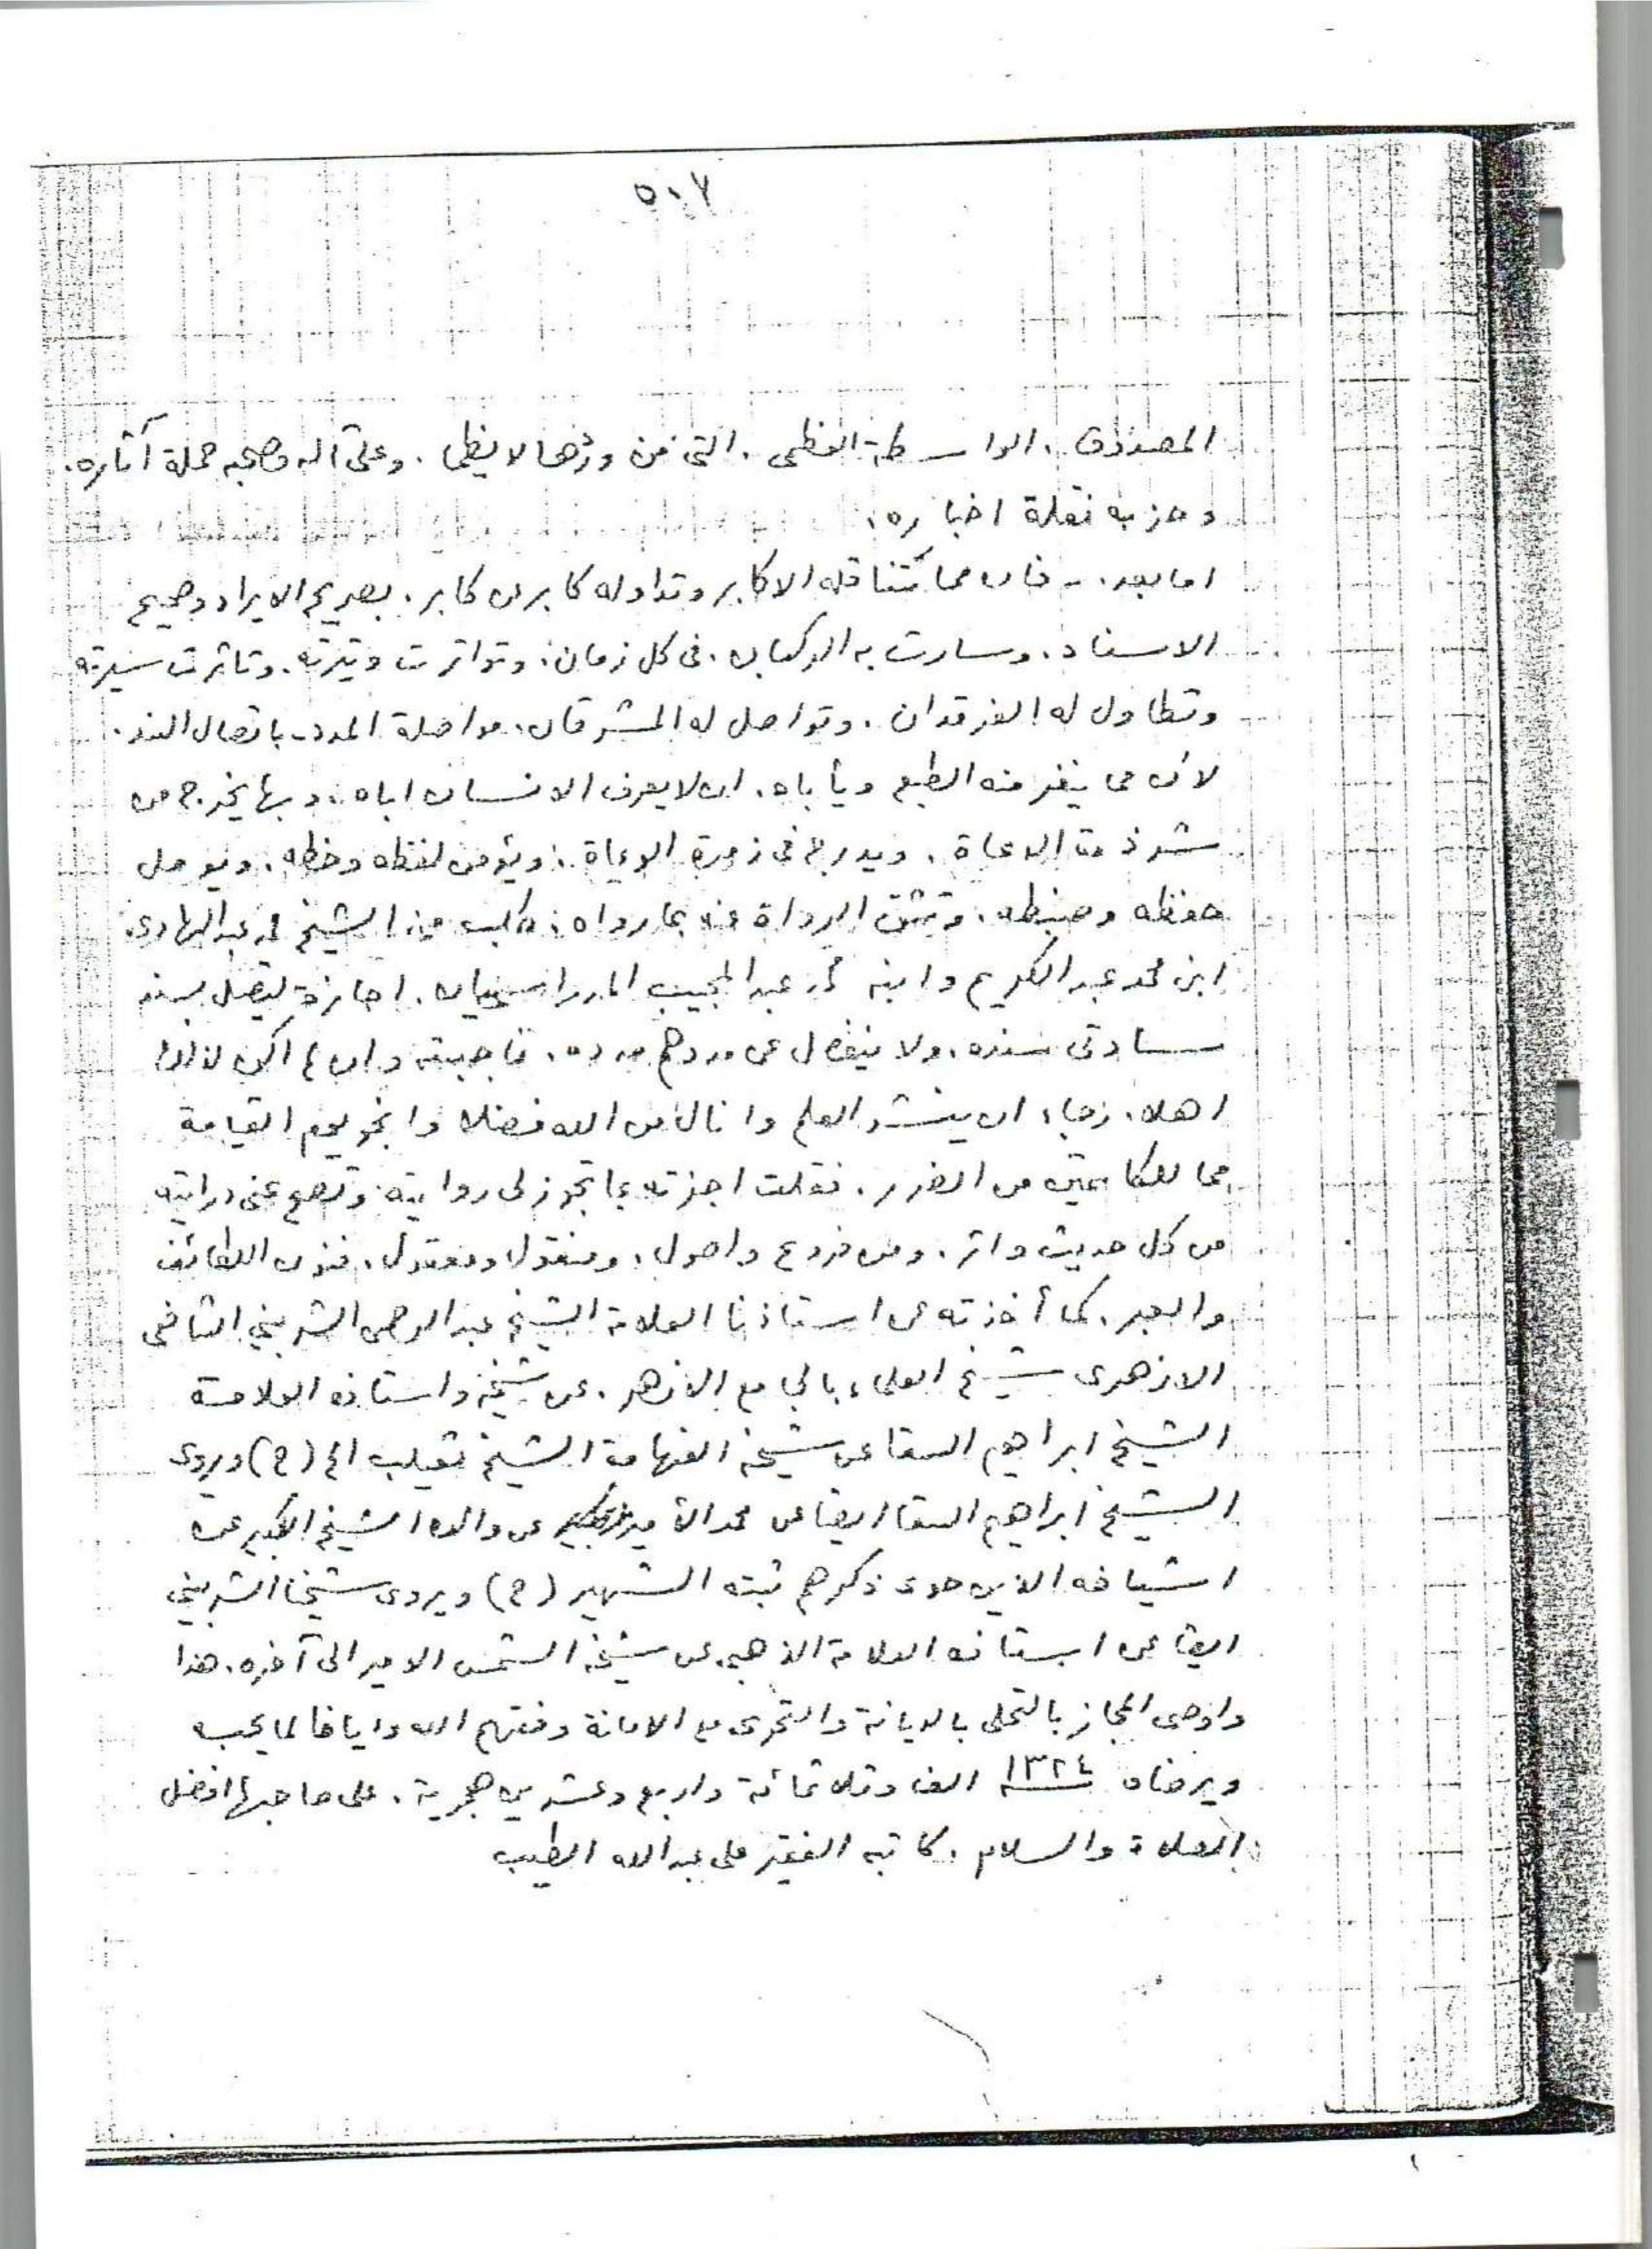 ٥٠٧
المصدوق. الواسطة العظمى. التى من وردها لا يظمى. وعلى آله وصحبه حملة آثاره.
وحزبه نقلة اخباره.
اما بعد. فان مما تتناقله الاكابر وتداوله كابر عن كابر. بصريح الايراد وصحيح
الاسناد. وسارت به الركبان. فى كل زمان. وتواترت وتيرته. وتاثرت سيرته
وتطاول له الفرقدان. وتواصل له المشرقان. مواصلة المدد. باتصال السند.
لان مما ينفر منه الطبع ويأباه. ان لا يعرف الانسان اباه. وبها يخرج من
شرذمة الدعاة. ويدرج فى زمرة الوعاة. ويؤمن لفظه وخطه. ويومل
حفظه وضبطه. وتثق الرواة عنه بما رواه. طلب منى الشيخ محمد عبد الهادى
ابن محمد عبد الكريم وابنه محمد عبد المجيب المدراسيان. اجازة ليتصل بسند
سادتى سنده. ولا ينفصل عن مددهم مدده. فاجبته وان لم اكن لذلك
اهلا. رجاء ان ينتشر العلم وانال من الله فضلا وانجو يوم القيامة
مما للكاتمين من الضرر. فقلت اجزته بما تجوز لى روايته. وتصح عنى درايته
من كل حديث واثر. ومن فروع واصول. ومنقول ومعقول. فنون اللطائف
والعبر. كما أخذته عن استاذنا العلامة الشيخ عبد الرحمن الشربينى الشافعى
الازهرى شيخ العلماء بالجامع الازهر. عن شيخه واستاذه العلامة
الشيخ ابراهيم السقا عن شيخه الفهامة الشيخ ثعيلب الخ (ح) ويروى
الشيخ ابراهيم السقا ايضا عن محمد الأمير عن والده الشيخ الكبير عن
اشياخه الذين حوى ذكرهم ثبته الشهير (ح) ويروى شيخنا الشربينى
ايضا عن استاذه العلامة الذهبى عن شيخه الشمس الامير الى آخره. هذا
واوصى المجاز بالتحلى بالديانة والتحرى مع الامانة وفقهم الله وايانا لما يحب
ويرضاه ١٣٢٤ الف وثلاثمائة واربع وعشرين هجرية. على صاحبها افضل
الصلاة والسلام. كاتبه الفقير على عبد الله الطيب